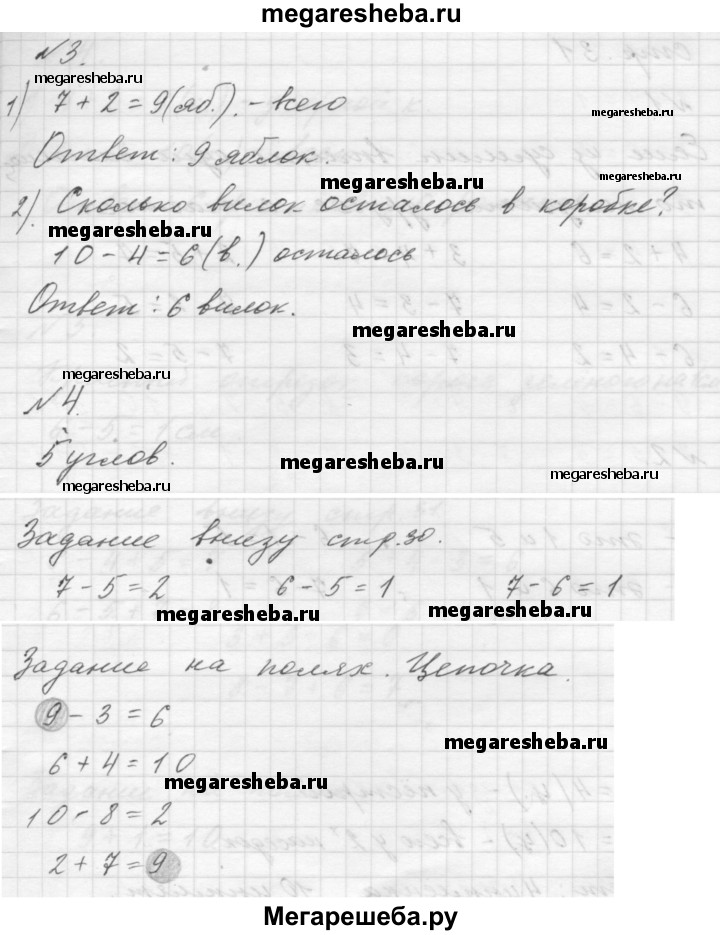 megaresheba.ru
№3.
megaresheba.ru
1) 7 + 2 = 9(яб.) - всего
megaresheba.ru
Ответ: 9 яблок.
megaresheba.ru
2). Сколько вилок осталось в коробке?
megaresheba.ru
10 - 4 = 6(в.) осталось
Ответ: 6 вилок.
megaresheba.ru
megaresheba.ru
№4.
5 углов.
megaresheba.ru
megaresheba.ru
megaresheba.ru
Задание внизу стр.30.
7 - 5 = 2 6 - 5 = 1 7 - 6 = 1
megaresheba.ru
megaresheba.ru
Задание на полях. Цепочка.
9 - 3 = 6
megaresheba.ru
6 + 4 = 10
megaresheba.ru
10 - 8 = 2
2 + 7 = 9
Мегарешеба.ру